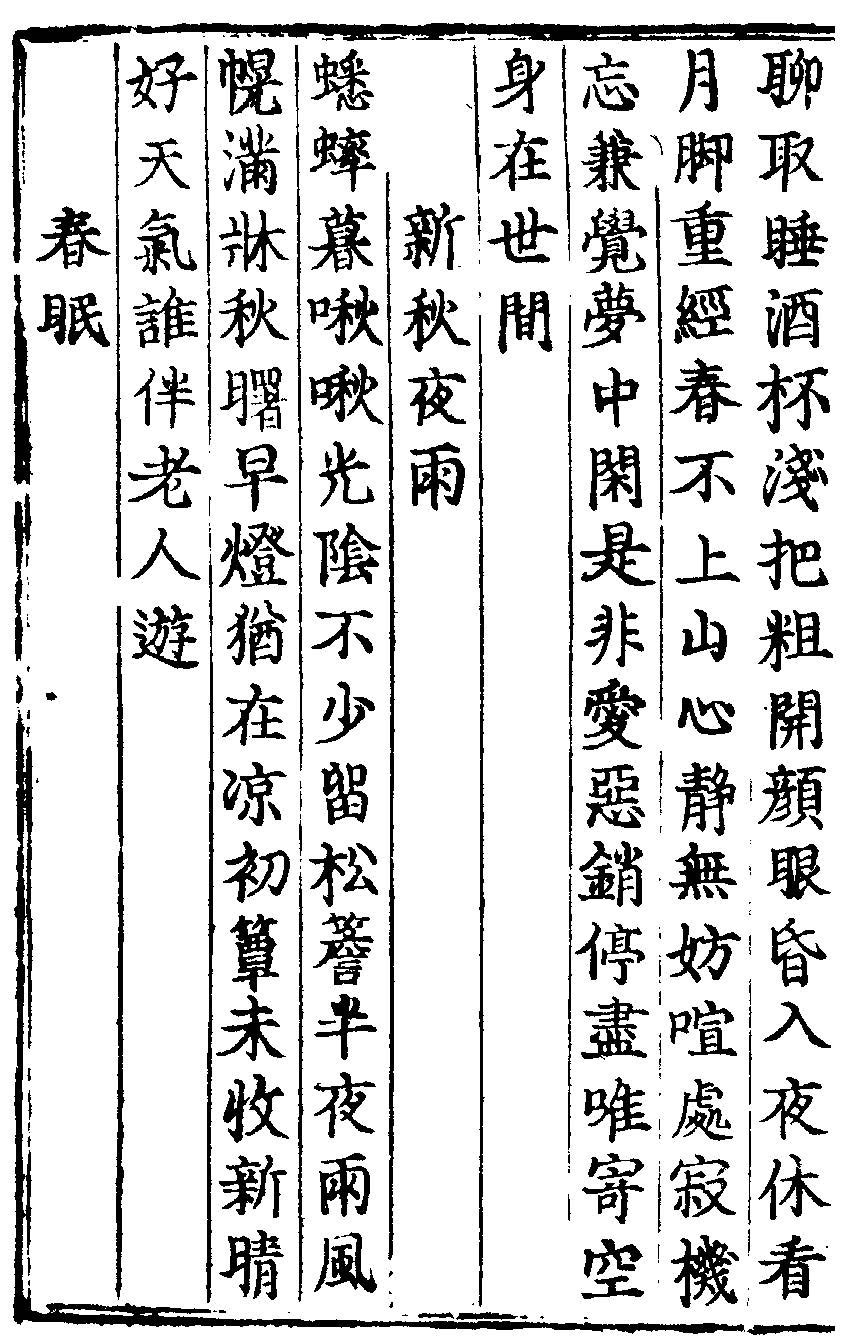 聊取睡酒杯淺把粗開顔眼昏入夜休看
月脚重經春不上山心静無妨喧處寂機
忘兼覺夢中閑是非愛惡銷停盡唯寄空
身在世間
新秋夜雨
蟋蟀暮啾啾光隂不少留松簷半夜雨風
幌滿牀秋曙早燈猶在凉初簟未收新晴
好天氣誰伴老人遊
春眠